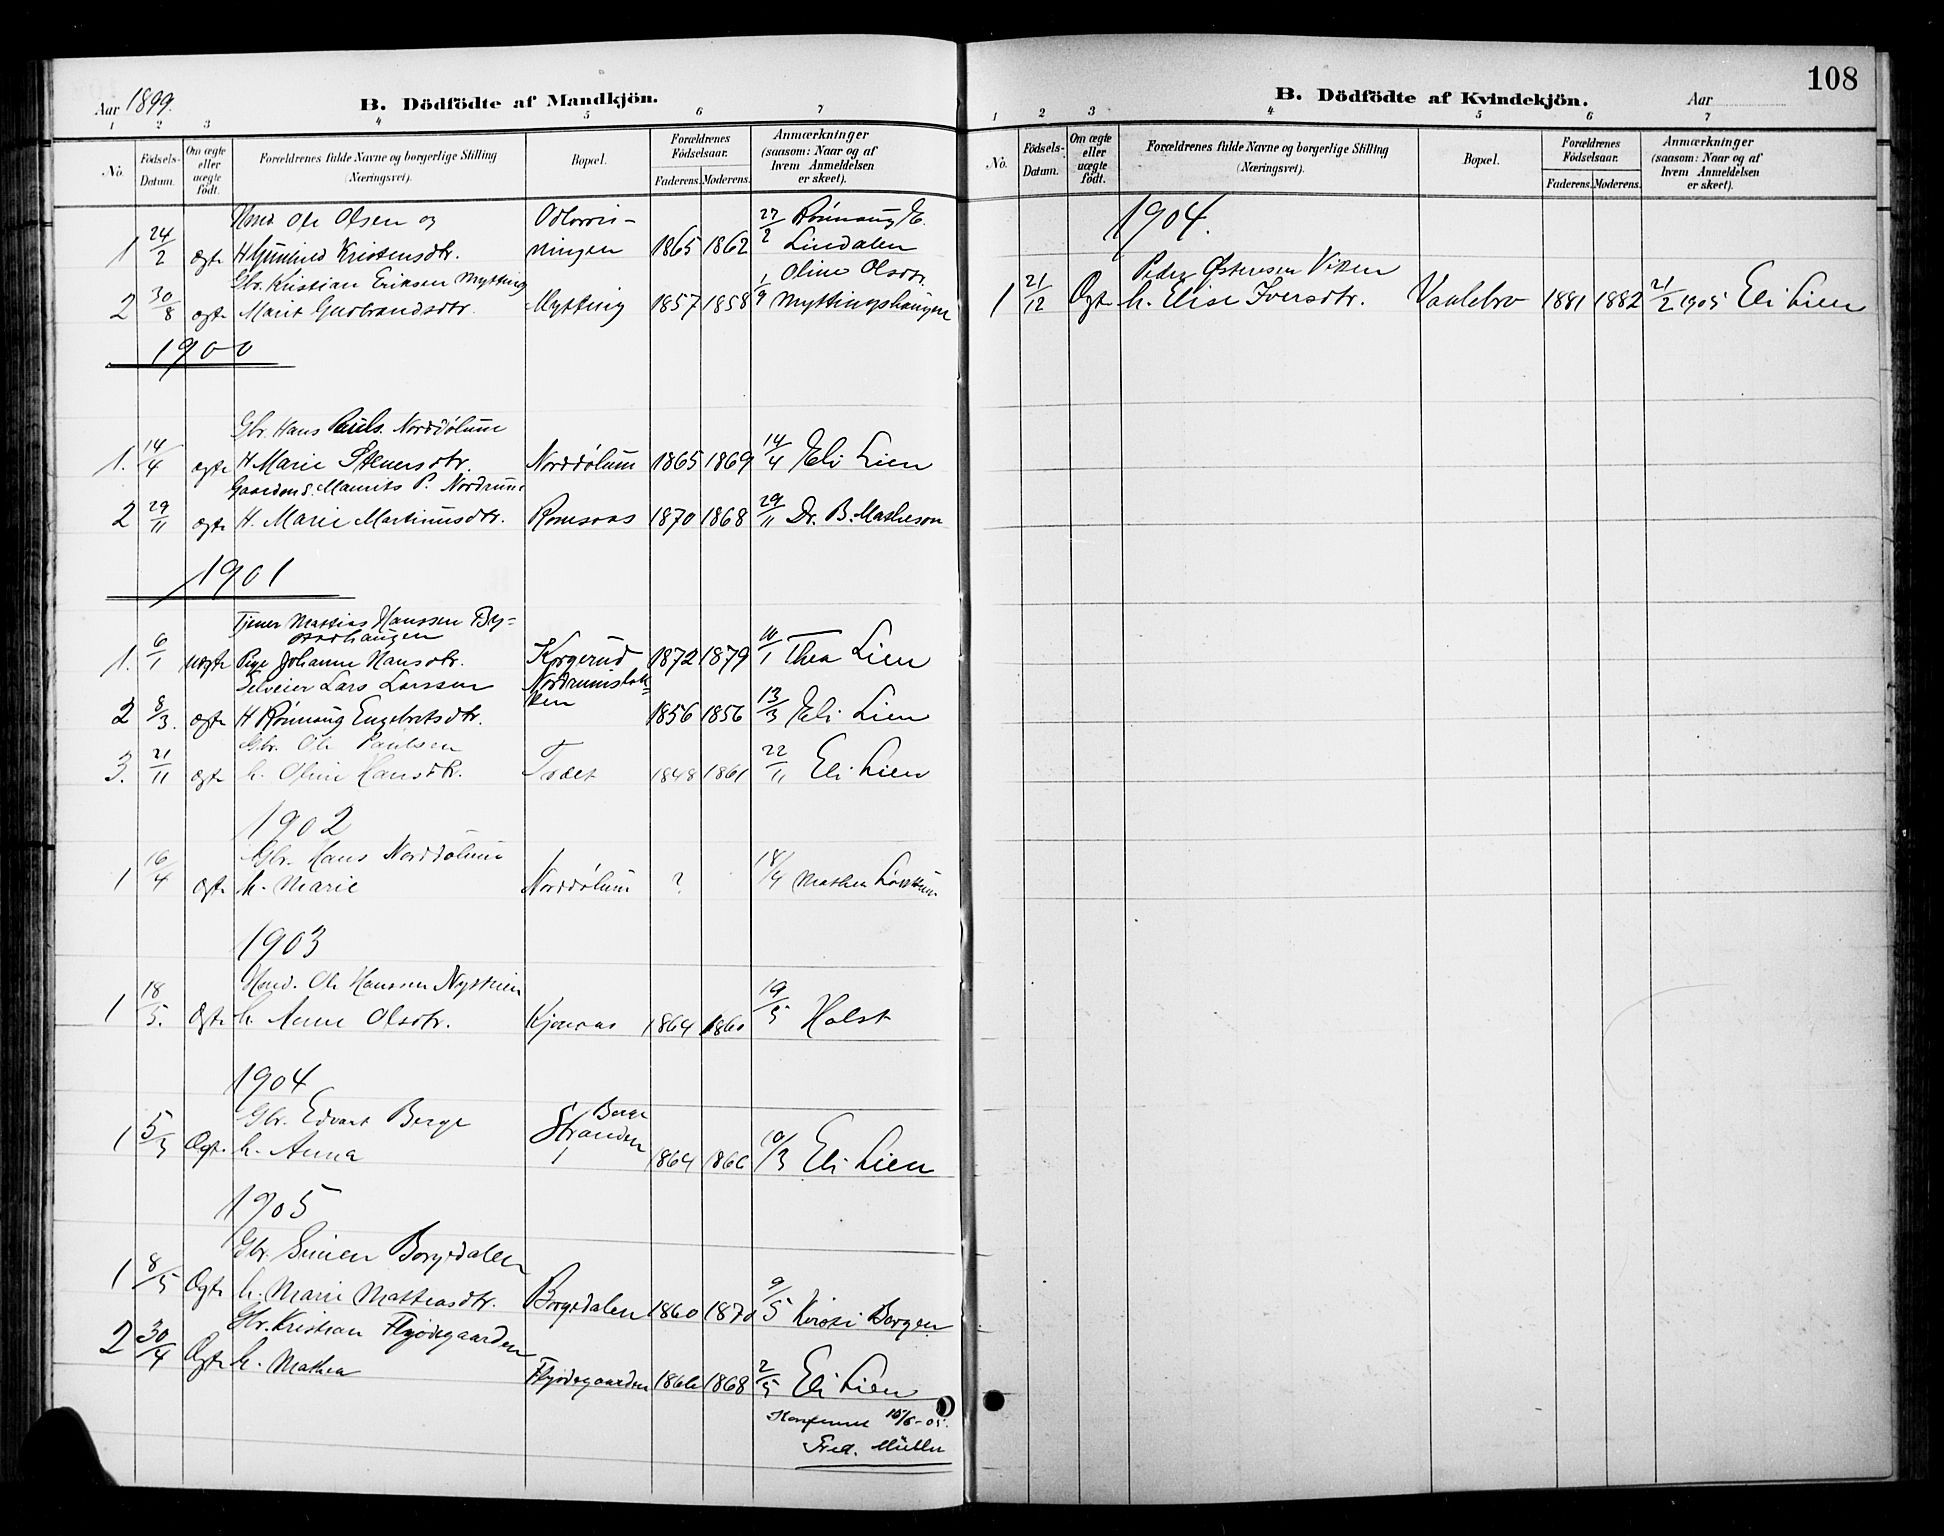 Aar 1899. B. Dödfödte af Mandkjön.
1 2 3 4 5 6 7
No. Födsels-Datum. Om ægte eller uægte födt. Forældrenes fulde Navne og borgerlige Stilling (Næringsvei). Bopæl. Forældrenes Födselsaar. Faderens. Moderens. Anmærkninger (saasom: Naar og af hvem Anmeldelsen er skeet).
Ole Olsen og
1 24/2 ægte H Gunhild Kristensdtr. 1865 1862 27/2 Rønnaug E. Lindalen
Gbr. Kristian Eriksen Mytting
2 30/8 ægte Marit Gudbrandsdtr. Mytting 1857 1858 1/9 Oline Olsdtr. Myttingshaugen
1900
Gbr. Hans Pauls. Norddølum
1. 14/4 ægte H Marie Steners dtr. Norddølum 1865 1869 14/4 Eli Lien
Gaardbrs. Maurits P. Nordrum
2 29/11 ægte H. Marie Martinusdtr. Romsaas 1870 1868 29/11 Dr. B. Matheson
1901
Tjener Mattias Hanssen By-
stadhaugen
1. 6/1 uægte Pige Johanne Hansdtr. Korgerud 1872 1879 10/1 Thea Lien
Selveier Lars Larssen Nordrumsløk-
ken
2 8/3. ægte H Rønnaug Engebretsdtr. 1856 1856 13/3 Eli Lien
Gbr. Ole Paulsen
3. 21/11 ægte h. Oline Hansdtr. 1848 1861 22/11 Eli Lien
1902
Gbr. Hans Norddølum
1 16/4 ægte h. Marie Norddølum ? 18/4 Mathea
1903
Ole Hanssen Nystuen
1 18/5. Ægte h. Anne Olsdtr. Kjønaas 1864 1860 19/5 Holst
1904
Gbr. Edvart Berge
1 5/3 Ægte. h. Anna Berge Stranden 1864 1866 10/3 Eli Lien
1905
Gbr. Simen Borgedalen
1 8/5 Ægte h. Marie Mattiasdtr. Borgedalen 1860 1870 9/5 Kirsti Borgen
Gbr. Kristian Flyødegaarden
2 30/4 Ægte h. Mathea Flyødegaarden 1866 1868 2/5 Eli Lien
Konfereret 15/6-05.
Fred. Müller
108
B. Dödfödte af Kvindekjön. Aar
1 2 3 4 5 6 7
No. Födsels-Datum. Om ægte eller uægte födt. Forældrenes fulde Navne og borgerlige Stilling (Næringsvei). Bopæl. Forældrenes Födselsaar. Faderens. Moderens. Anmærkninger (saasom: Naar og af hvem Anmeldelsen er skeet).
1904.
Peder Østensen Viken
1 21/12 Ægte h. Elise Iversdtr. Vaalebro 1881 1882 21/2 1905 Eli Lien